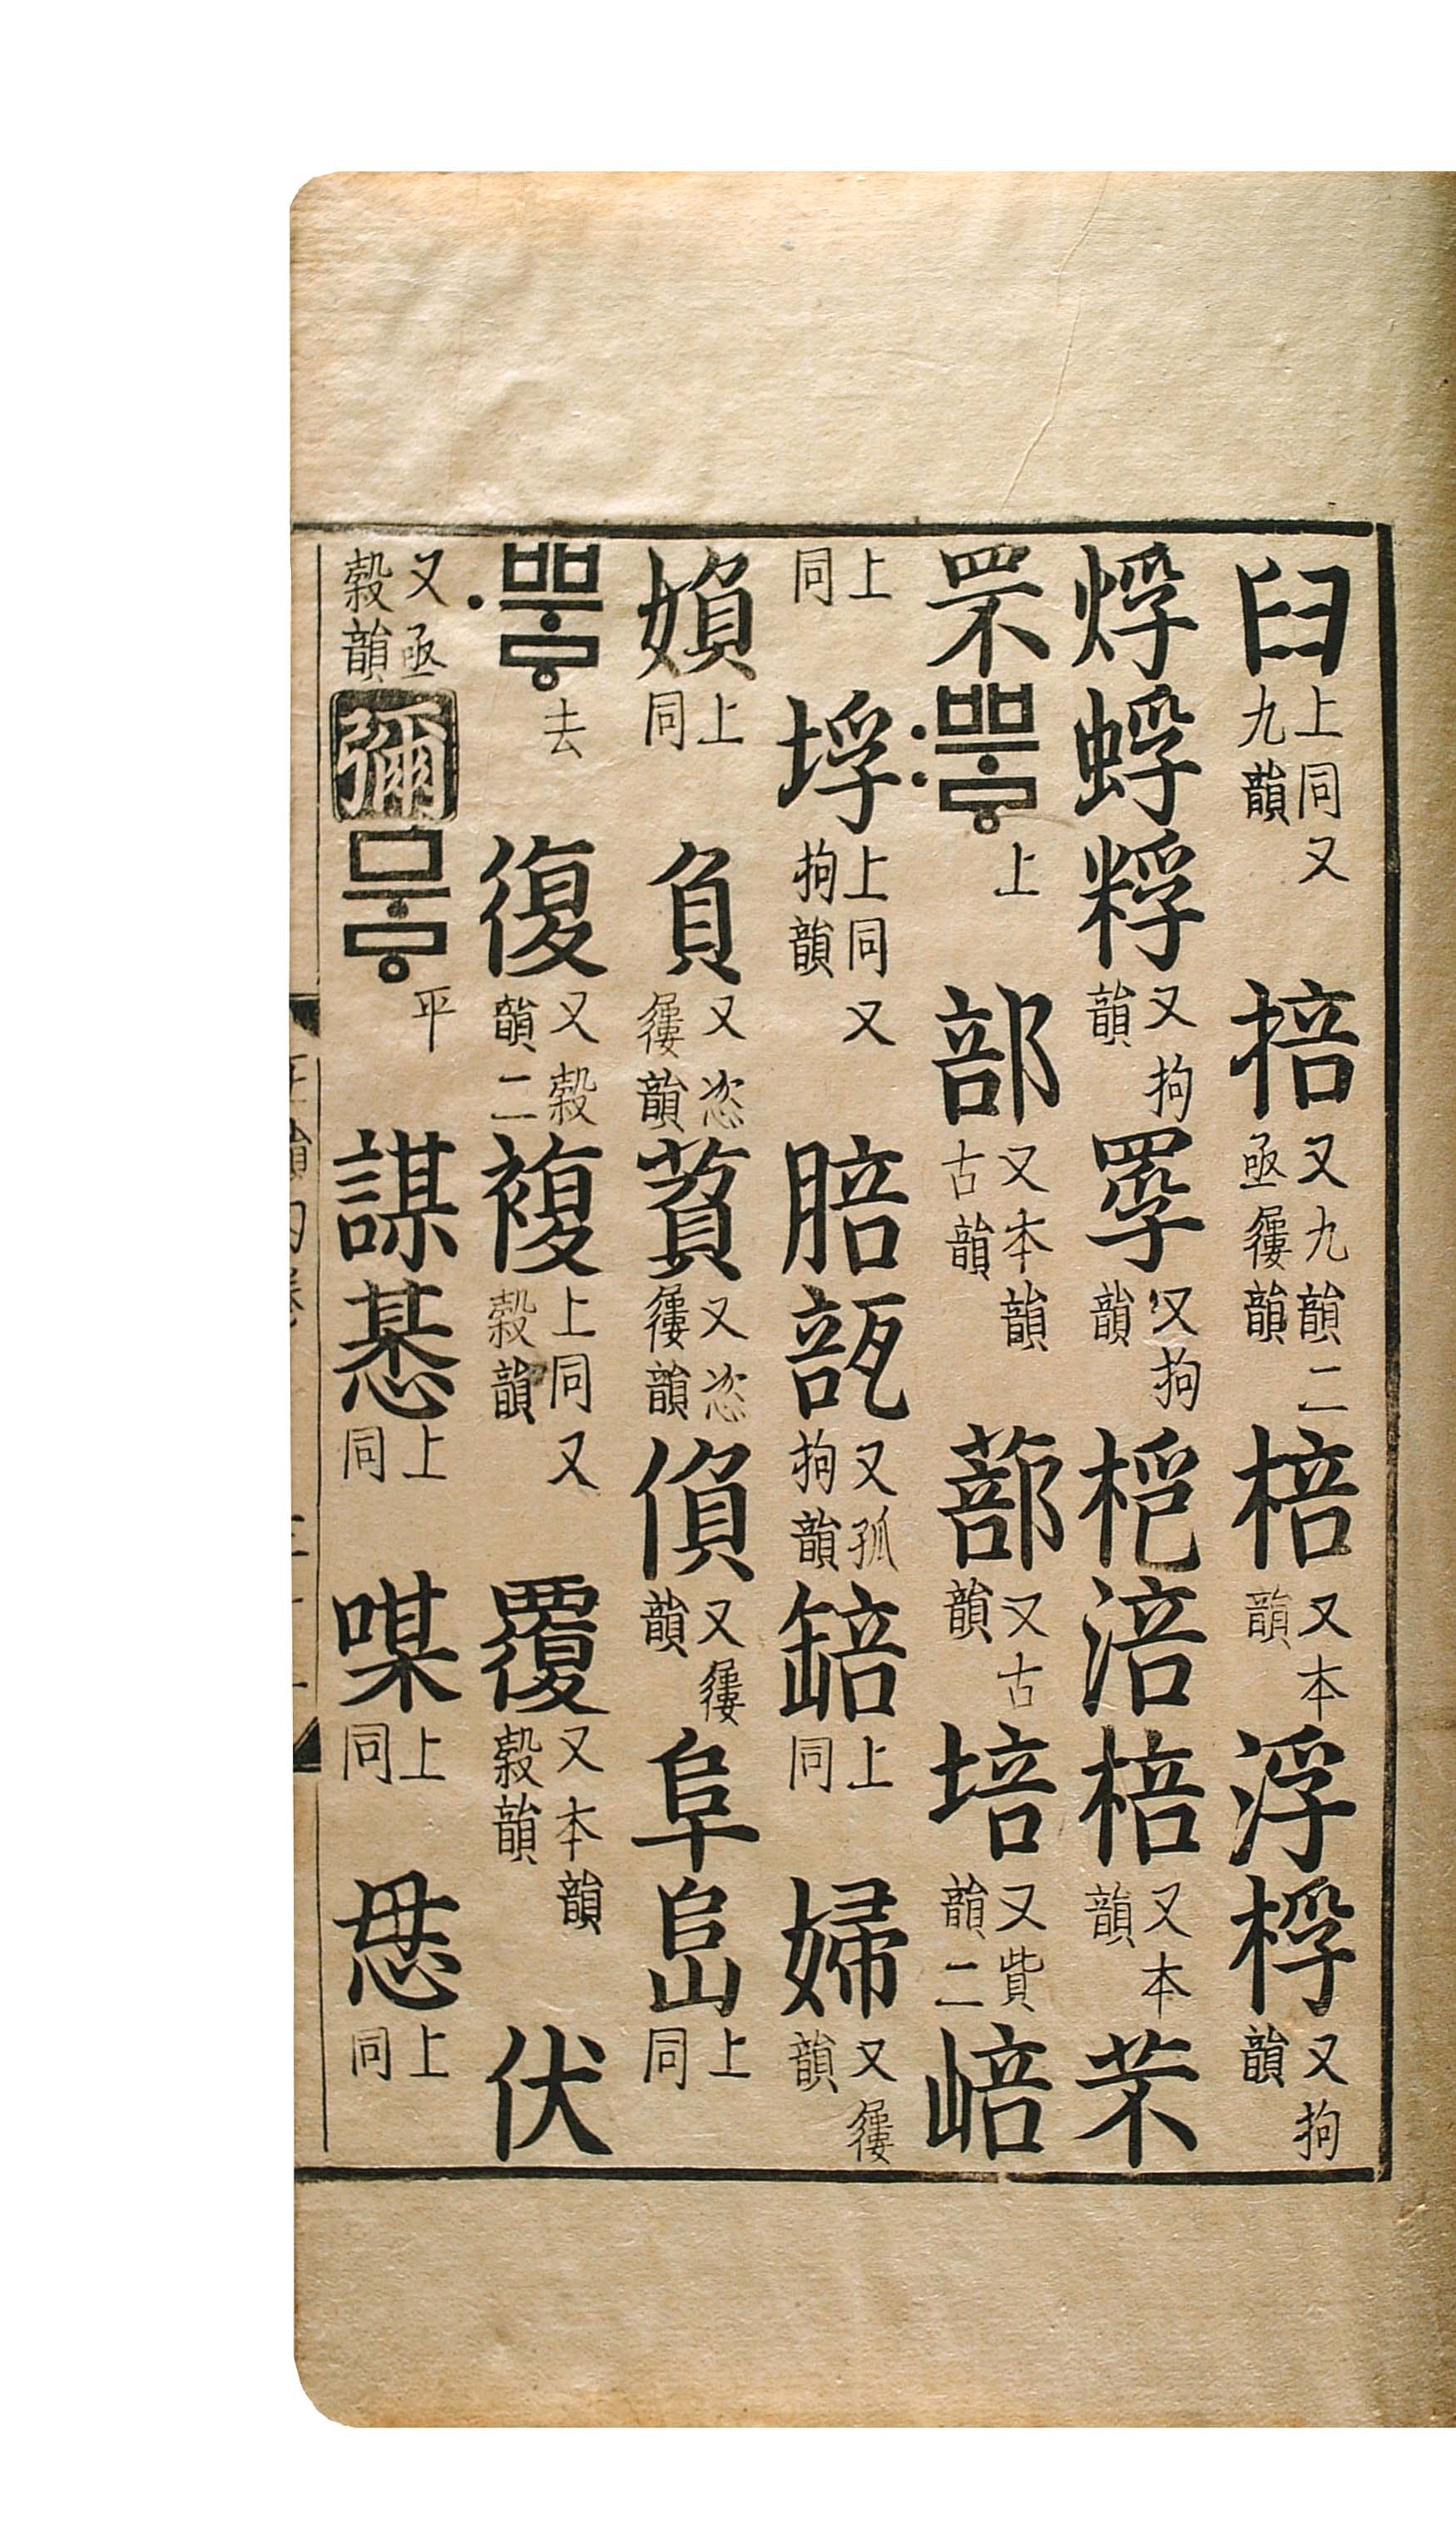 𦥑上同又九韻掊又九韻二亟屨韻棓又本韻浮桴又拘韻
烰蜉粰又拘韻罦又拘韻枹涪棓又本韻芣
罘〯뿌ᇢ上部又本韻古韻蔀又古韻培又貲韻二㟝
上同垺上同又拘韻瓿又孤拘韻上同婦又屨韻
媍上同負又恣屨韻萯又恣屨韻偩又屨韻阜峊上同
〮뿌ᇢ去復又穀韻二複上同又穀韻覆又本韻穀韻伏
又亟穀韻彌무ᇢ平謀惎上同㖼上同上同